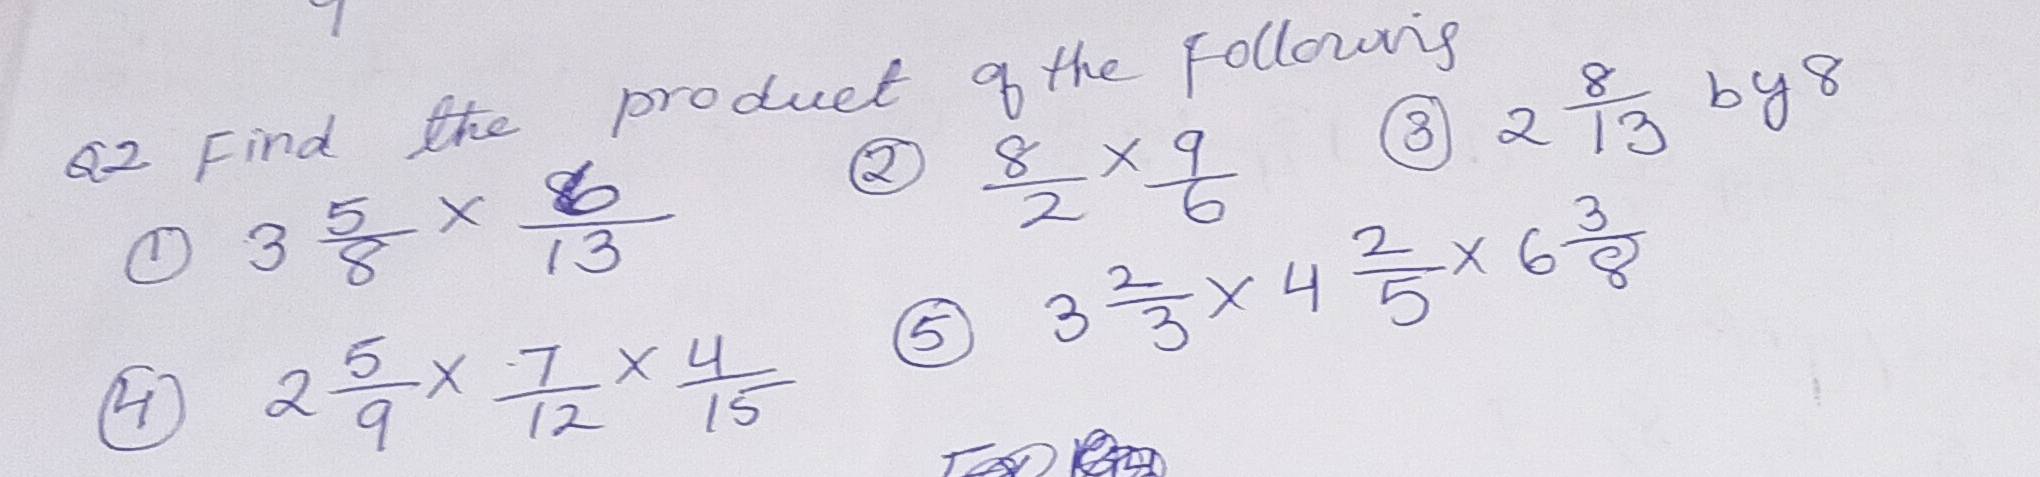 Q2 Find the product of the following
① 3 5/8 × 6/13 ② 8/2 × 9/6 ③ 2 8/13 by 8
④ 2 5/9 × 7/12 × 4/15 ⑤ 3 2/3 × 4 2/5 × 6 3/8